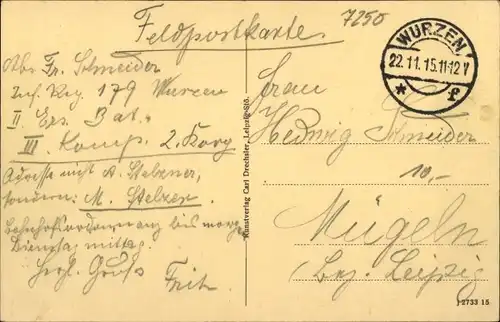 Feldpostkarte.
7250
WURZEN
22.11.15.11-12V
* f
Abs. Fr. Schneider
Inf. Reg 179 Wurzen
II. Ers. Bat.
III. Komp. 2. Korp
Adresse nicht A. Stelzner,
sondern: M. Stelzer.
bis morg.
Dienstag mittag.
Herzl. Gruß
Fritz
Kunstverlag Carl Drechsler, Leipzig-Stö.
Frau
Hedwig Schneider
10,-
Mügeln
Bez. Leipzig
J 2733 15